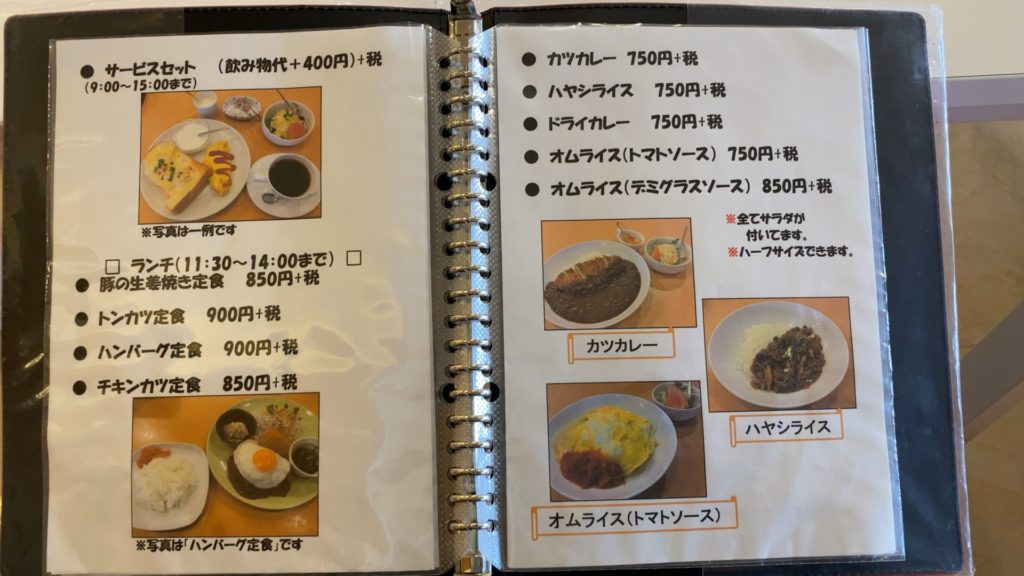 ● サービスセット (飲み物代+400円)+税
(9:00~15:00まで)
※写真は一例です
□ ランチ(11:30~14:00まで) □
● 豚の生姜焼き定食 850円+税
● トンカツ定食 900円+税
● ハンバーグ定食 900円+税
● チキンカツ定食 850円+税
※写真は「ハンバーグ定食」です
● カツカレー 750円+税
● ハヤシライス 750円+税
● ドライカレー 750円+税
● オムライス(トマトソース) 750円+税
● オムライス(デミグラスソース) 850円+税
※全てサラダが
付いてます。
※ハーフサイズできます。
カツカレー
ハヤシライス
オムライス(トマトソース)